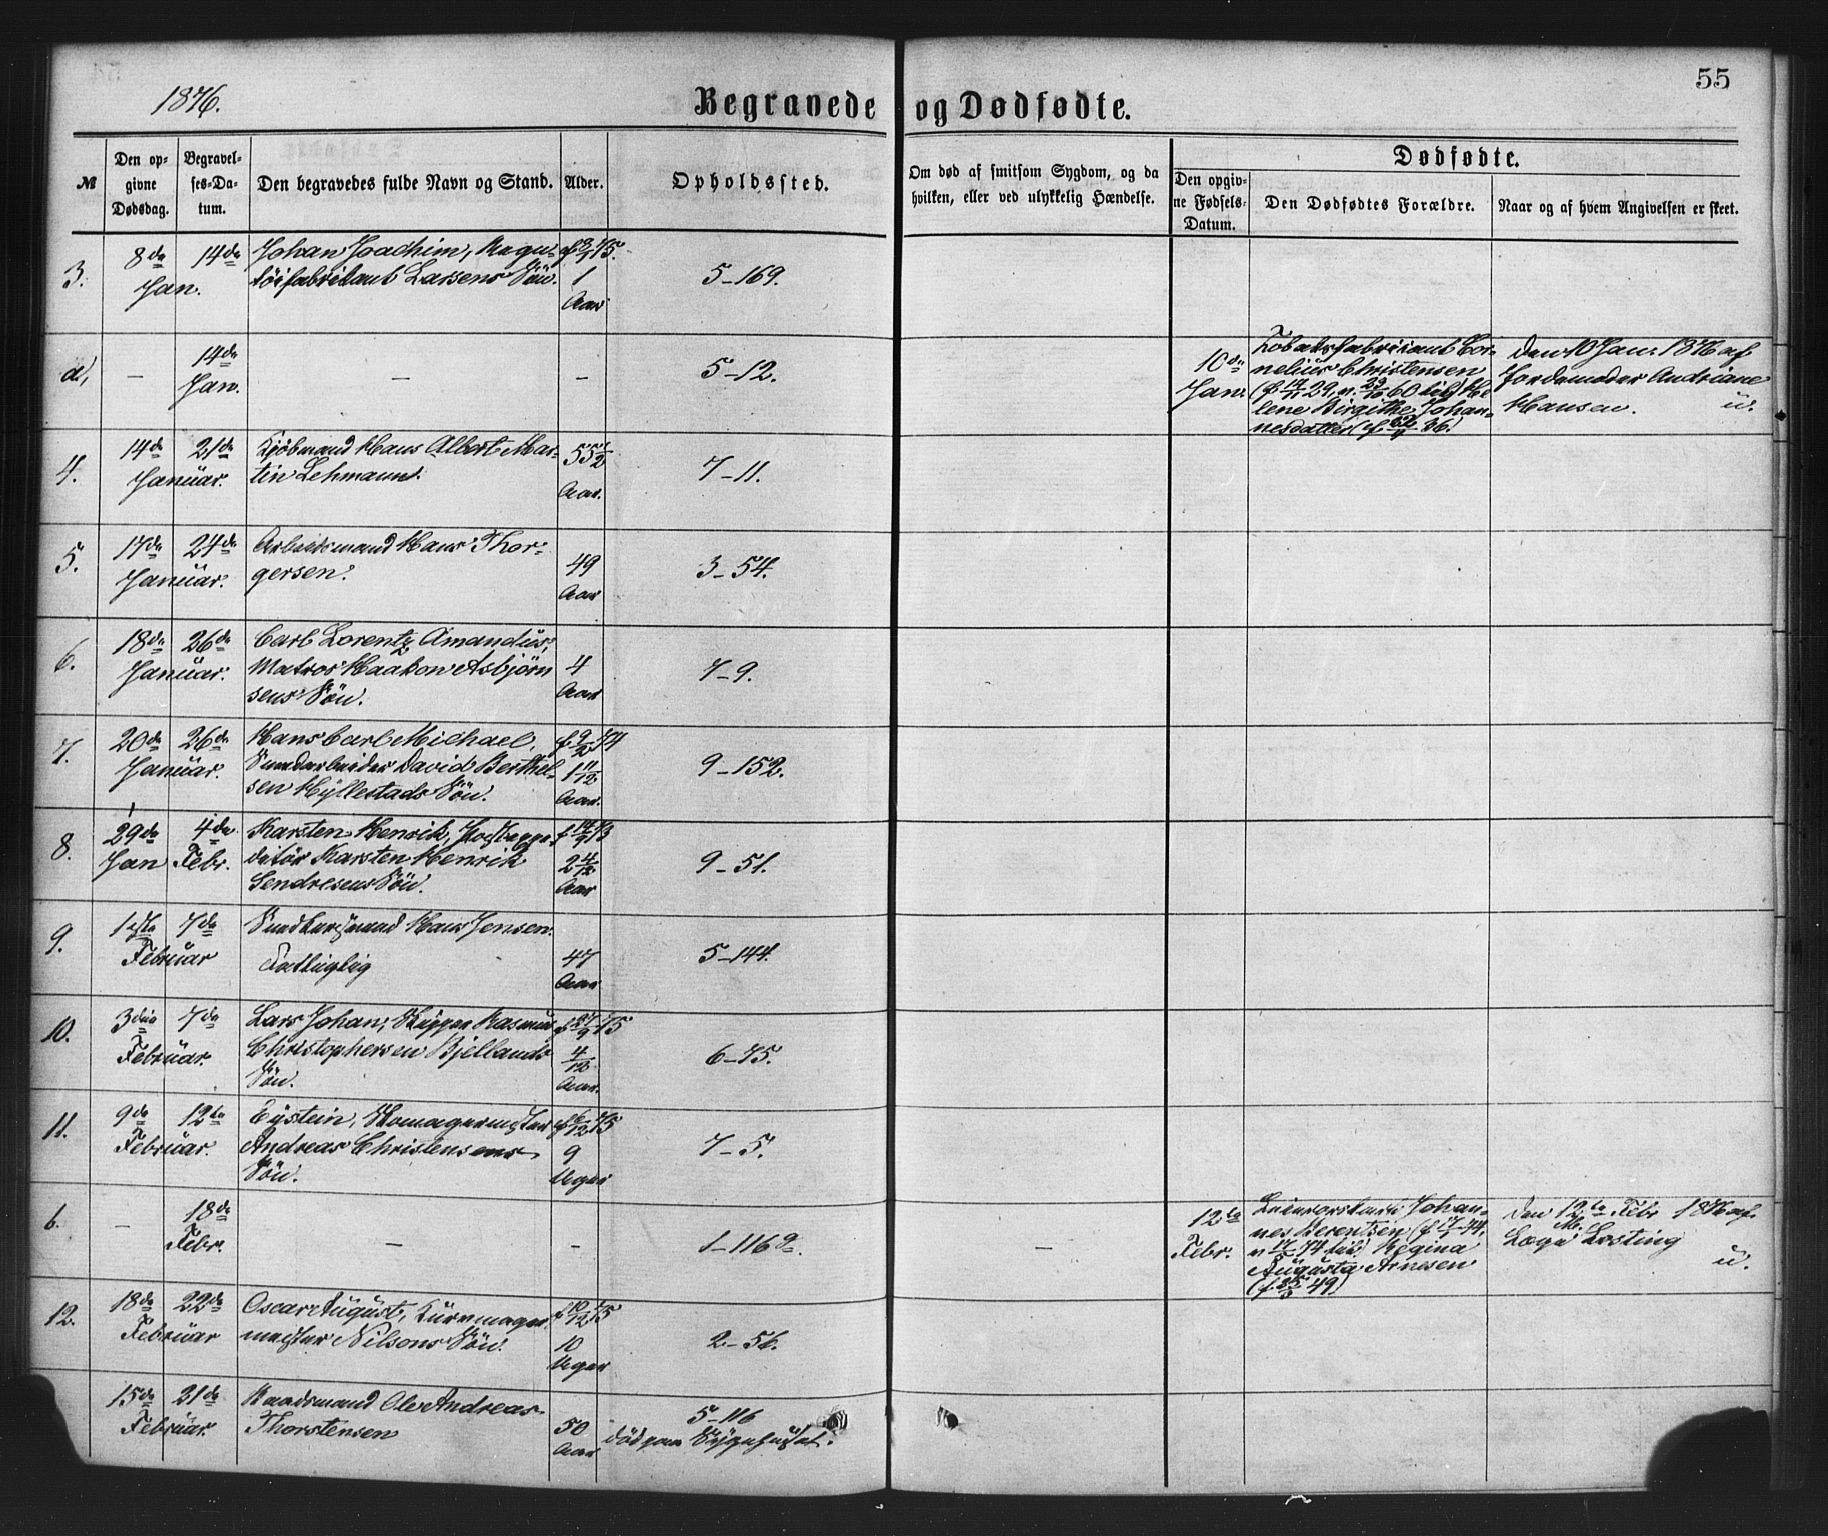 55
1876.
Begravede og Dødfødte.
№
Den op-
givne
Dødsdag.
Begravel-
ses-Da-
tum.
Den begravedes fulde Navn og Stand.
Alder.
Opholdssted.
Om død af smitsom Sygdom, og da
hvilken, eller ved ulykkelig Hændelse.
Dødfødte.
Den opgiv-
ne Fødsels-
Datum.
Den Dødfødtes Forældre.
Naar og af hvem Angivelsen er skeet.
3.
8de 14de
Jan.
Johan Joachim,
Larsens Søn.
1
Aar
5-169.
a,
—
14de
Jan.
—
-
5-12.
10de
Jan.
Tobaksfabrikant Cor-
nelius Christensen
lene Birgithe Johan-
nesdatter
den 10 Jan. 1876 af
Jordemoder Andriane
Hansen. u.
4.
14de 21de
Januar.
Kjøbmand Hans Albert Mar-
tin Lehmann.
55½
Aar.
7-11.
5.
17de 24de
Januar.
Arbeidsmand Hans Thor-
gersen.
49
Aar
3-54.
6.
18de 26de
Januar.
Carl Lorentz Amandus,
Matros Haakon Asbjørn
sens Søn.
4
Aar
7-9.
7.
20de 26de
Januar.
Hans Carl Michael,
David Berthel-
sen Hyllestads Søn.
f. 9/2 74
1 11/12
Aar.
9-152.
8.
29de 4de
Jan Febr.
Karsten Henrik,
Karsten Henrik
Søn.
2 4/12
Aar
9-51.
9.
1ste 7de
Februar
Hans Jensen.
Fattiglig
47
Aar
5-144.
10.
3die 7de
Februar.
Lars Johan, Skipper Rasmus
Christophersen Bjellands
Søn.
f. 27/9 75
4/12
Aar.
6-75.
11.
9de 12te
Februar.
Eystein, Skomagermester
Andreas Christensens
Søn.
f. 6/12 75
9
Uger
7-5.
b.
—
18de
Febr.
—
-
1-116a.
—
12te
Febr.
Johan-
nes Berentsen
Regina
Augusta Arnesen
(f. 25/5 49)
Den 12te Febr 1876 af
Læge Losting
u.
12.
18de 22de
Februar
Oscar August, Kurvmager
mester Nilsens Søn.
f. 10/12 75
10
Uger
2-56.
15de 21de
Februar.
Ole Andreas
Thorstensen
50
Aar
5-116
død paa Sygehuset.